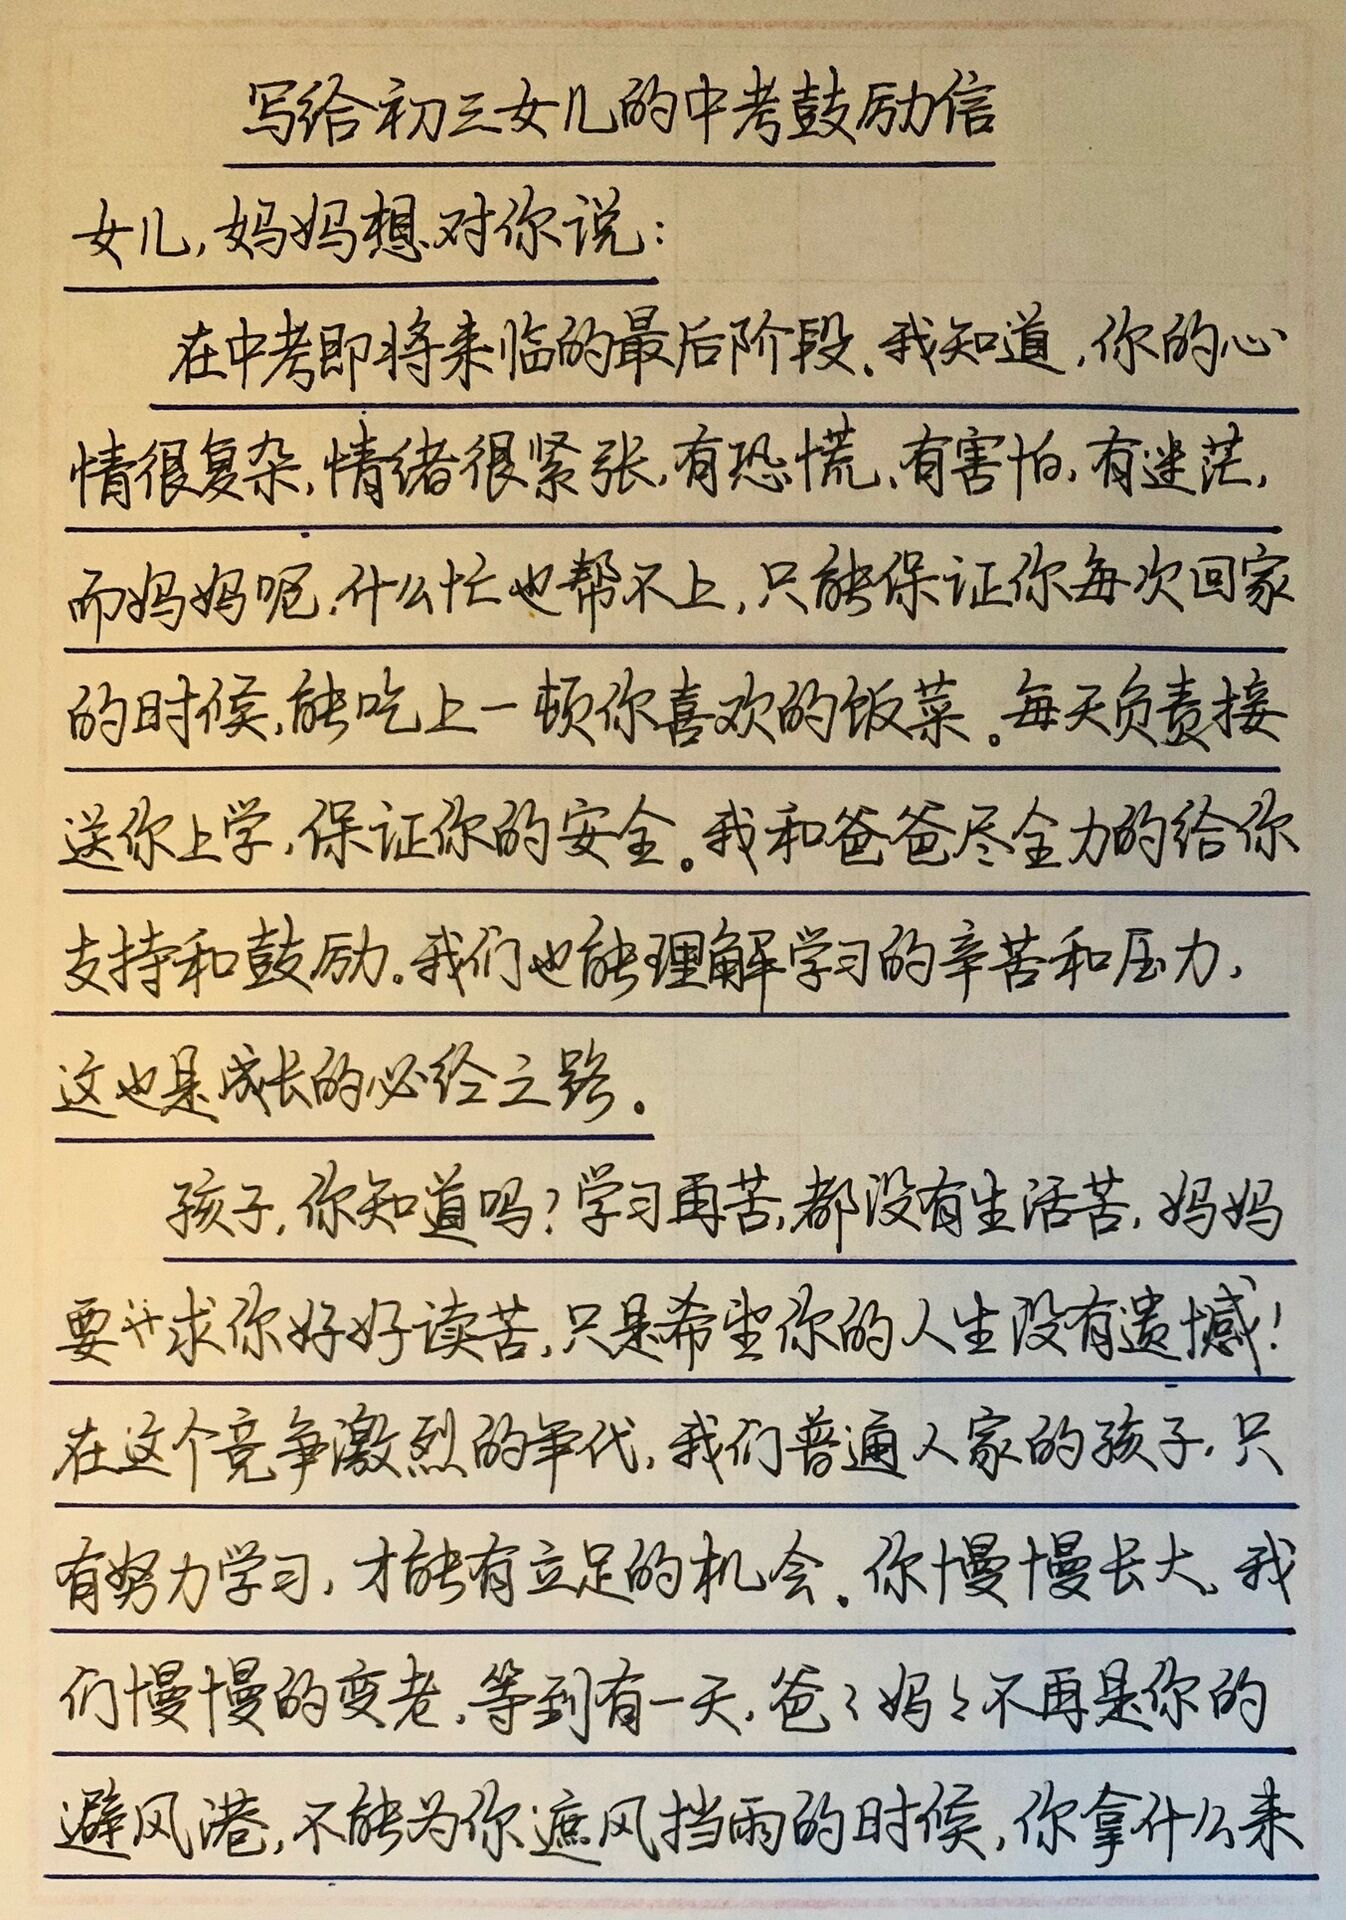 写给初三女儿的中考鼓励信
女儿,妈妈想对你说:
在中考即将来临的最后阶段。我知道,你的心
情很复杂,情绪很紧张,有恐慌、有害怕,有迷茫,
而妈妈呢,什么忙也帮不上,只能保证你每次回家
的时候,能吃上一顿你喜欢的饭菜。每天负责接
送你上学,保证你的安全。我和爸爸尽全力的给你
支持和鼓励。我们也能理解学习的辛苦和压力,
这也是成长的必经之路。
孩子,你知道吗?学习再苦,都没有生活苦,妈妈
要求你好好读苦,只是希望你的人生没有遗憾!
在这个竞争激烈的年代,我们普通人家的孩子,只
有努力学习,才能有立足的机会。你慢慢长大,我
们慢慢的变老,等到有一天,爸々妈々不再是你的
避风港,不能为你遮风挡雨的时候,你拿什么来